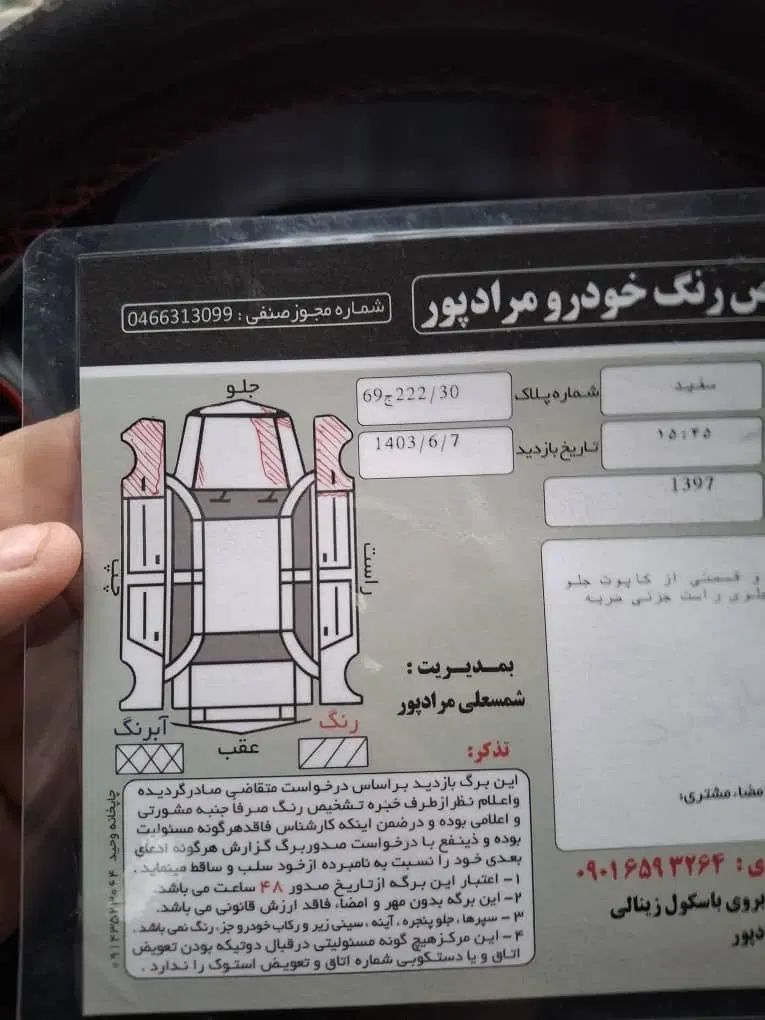 رنگ خودرو مرادپور
شماره مجوز صنفی : 0466313099
سفید
شماره پلاک
69ج222/30
۱۵:۴۵
تاریخ بازدید
1403/6/7
1397
جلو
راست
چپ
عقب
رنگ
آبرنگ
و قسمتی از کاپوت جلو
جلوی راست جزئی ضربه
بمدیریت :
شمسعلی مرادپور
تذکر:
این برگ بازدید براساس درخواست متقاضی صادرگردیده
واعلام نظر ازطرف خبره تشخیص رنگ صرفا جنبه مشورتی
و اعلامی بوده و درضمن اینکه کارشناس فاقدهرگونه مسئولیت
بوده و ذینفع با درخواست صدوربرگ گزارش هرگونه ادعای
بعدی خود را نسبت به نامبرده ازخود سلب و ساقط مینماید .
۱- اعتبار این برگه ازتاریخ صدور ۴۸ ساعت می باشد.
۲- این برگه بدون مهر و امضاء، فاقد ارزش قانونی می باشد.
۳- سپرها ، جلو پنجره ، آینه ، سینی زیر و رکاب خودرو جزء رنگ نمی باشد.
۴- این مرکز هیچ گونه مسئولیتی درقبال دوتیکه بودن تعویض
اتاق و یا دستکوبی شماره اتاق و تعویض استوک را ندارد .
مشتری:
۰۹۰۱۶۵۹۳۲۶۴
باسکول زینالی
چاپخانه وحید